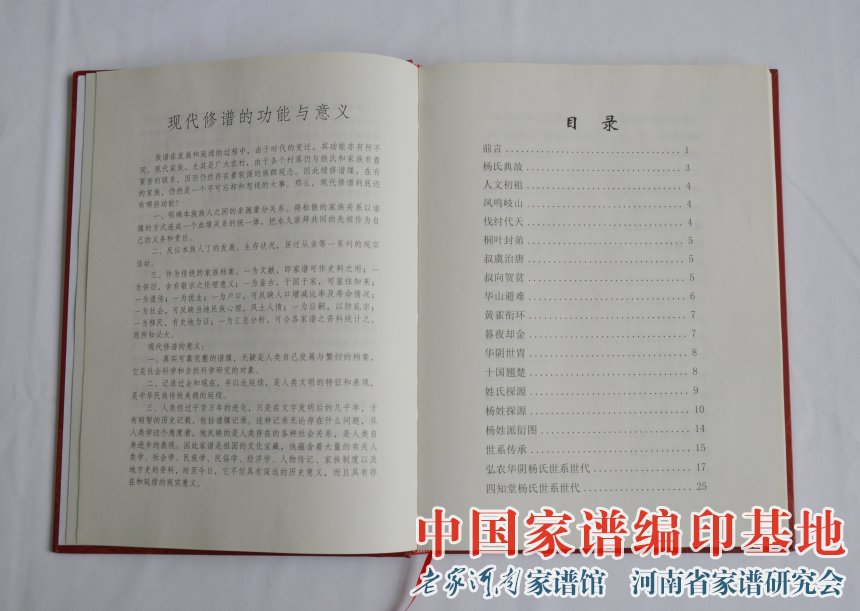 现代修谱的功能与意义
族谱在发展和延续的过程中，由于时代的变迁，其功能亦有所不
同。现代家族，尤其是广大农村，由于各个村落仍与姓氏和家族有着
紧密的联系，因而仍然存在着较强的族群观念。因此续修谱牒，在有
的家族，仍然是一个不可忘却和忽视的大事。那么，现代修谱到底还
有哪些功能？
一、明确本族族人之间的亲疏辈分关系，将松散的家族关系以谱
牒的方式连成一个血缘关系的统一体，把永久崇拜共同的先祖作为自
己的义务和责任。
二、反应本族人丁的发展、生存状况，居迁从业等一系列的现实
活动。
三、作为传统的家族档案。一为文献，即家谱可作史料之用；一
为怀旧，含有敬宗之伦理意义；一为鉴古，于国于家，可鉴往知来；一
为遗传；一为优生；一为户口，可反映人口增减比率及寿命情况；一
为社会，可反映当地民族心理，风土人情；一为后嗣，以防乱宗；一
为移民，有史地为证；一为汇总分析，可合各家谱之资料统计之，
则所知必大。
现代修谱的意义：
一、真实可靠完整的谱牒，无疑是人类自己发展与繁衍的档案，
它是社会科学和自然科学研究的对象。
二、记录过去和现在，并以此延续，是人类文明的特征和表现，
是中华民族传统美德的延续。
三、人类经过千百万年的进化，只是在文字发明后的几千年，才
有相暂的历史记载，包括谱牒记录。这种记录无论存在什么问题，从
人类学这个角度看，他反映的是人类存在的各种社会关系，是人类自
身进步的表现。因此家谱是祖国的文化宝藏，他蕴含着大量的有关人
类学、社会学、民族学、民俗学、经济学、人物传记、家族制度以及
地方史的资料，时至今日，它不但具有深远的历史意义，而且具有存
在和延续的现实意义。
目 录
前言 1
杨氏典故 3
人文初祖 4
凤鸣岐山 4
伐纣代天 4
桐叶封弟 5
叔虞治唐 5
叔向贺贫 5
华山避难 6
黄雀衔环 7
暮夜却金 7
华阴世胄 8
十国翘楚 8
姓氏探源 9
杨姓探源 10
杨姓派衍图 14
世系传承 15
弘农华阴杨氏世系世代 17
四知堂杨氏世系世代 25
中国家谱编印基地
老家河南家谱馆 河南省家谱研究会